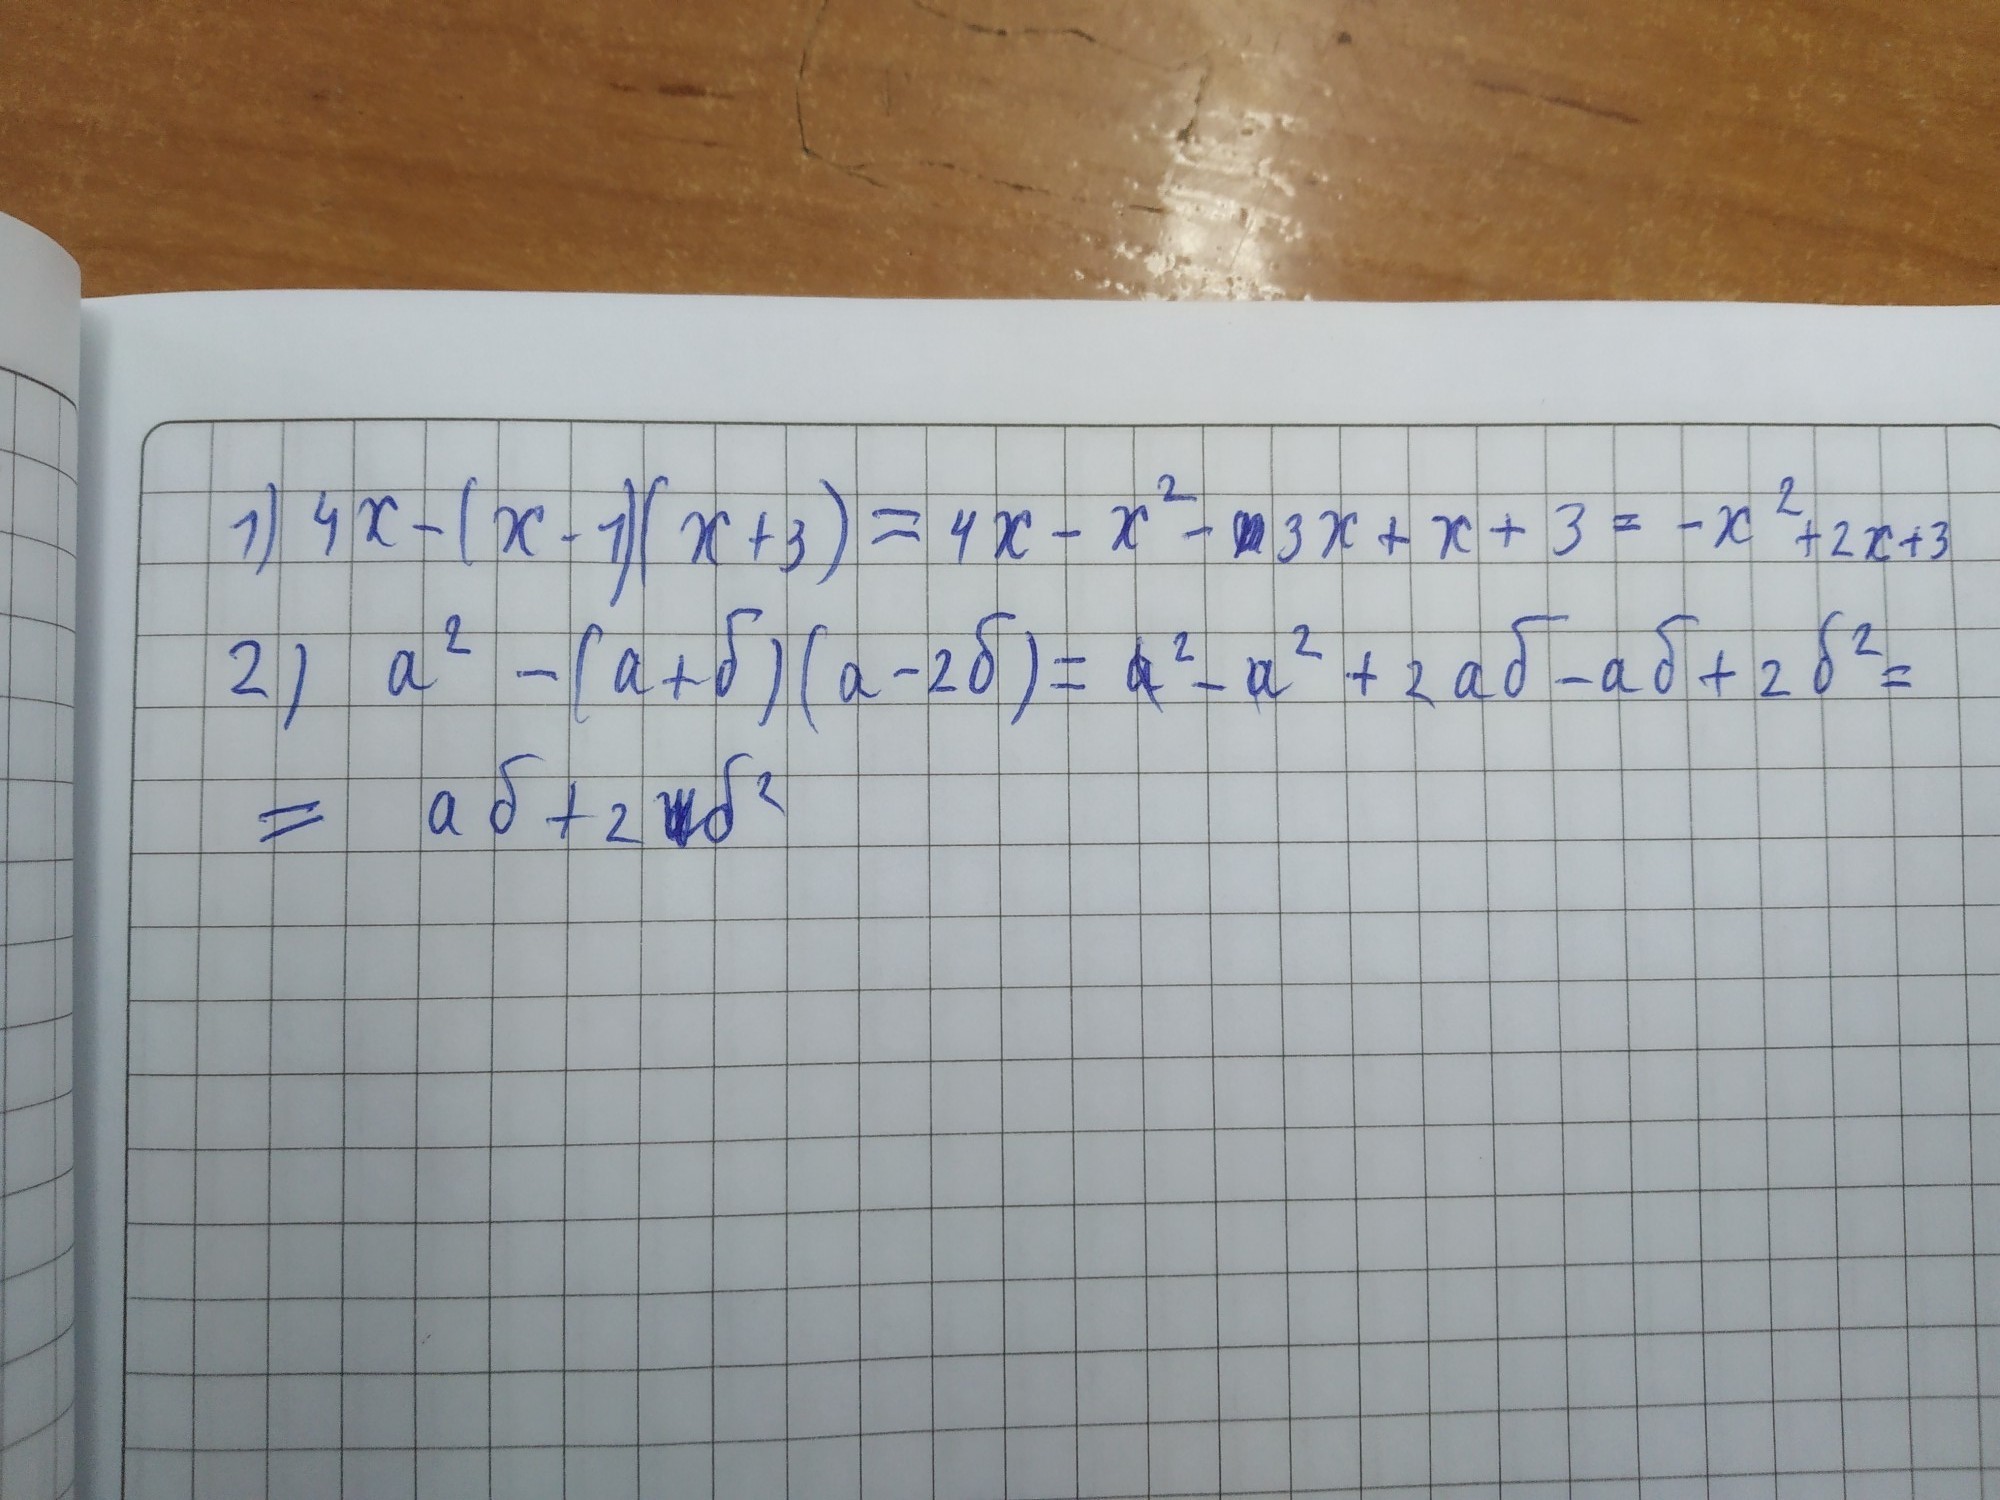 1) 4x-(x-1)(x+3)=4x-x²-3x+x+3=-x²+2x+3
2) a²-(a+б)(a-2б)=a²-a²+2aб-aб+2б²=
= aб+2б²